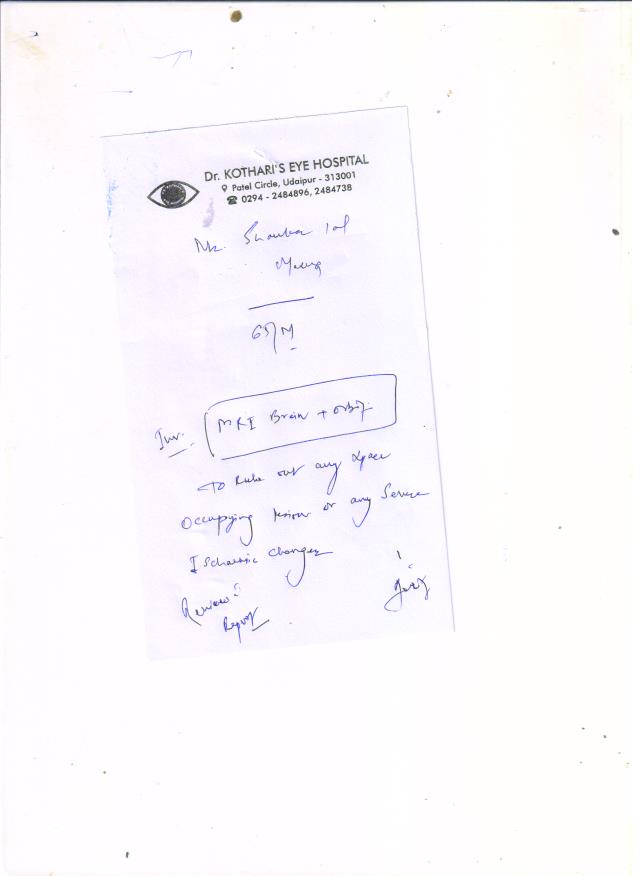 Dr. KOTHARI'S EYE HOSPITAL
Patel Circle, Udaipur - 313001
0294 - 2484896, 2484738
Mr. Shankar lal
65/M
Inv. MRI Brain + orbit
To Rule out any space
Occupying lesion or any Severe
Ischaemic changes
Review c̄
Report